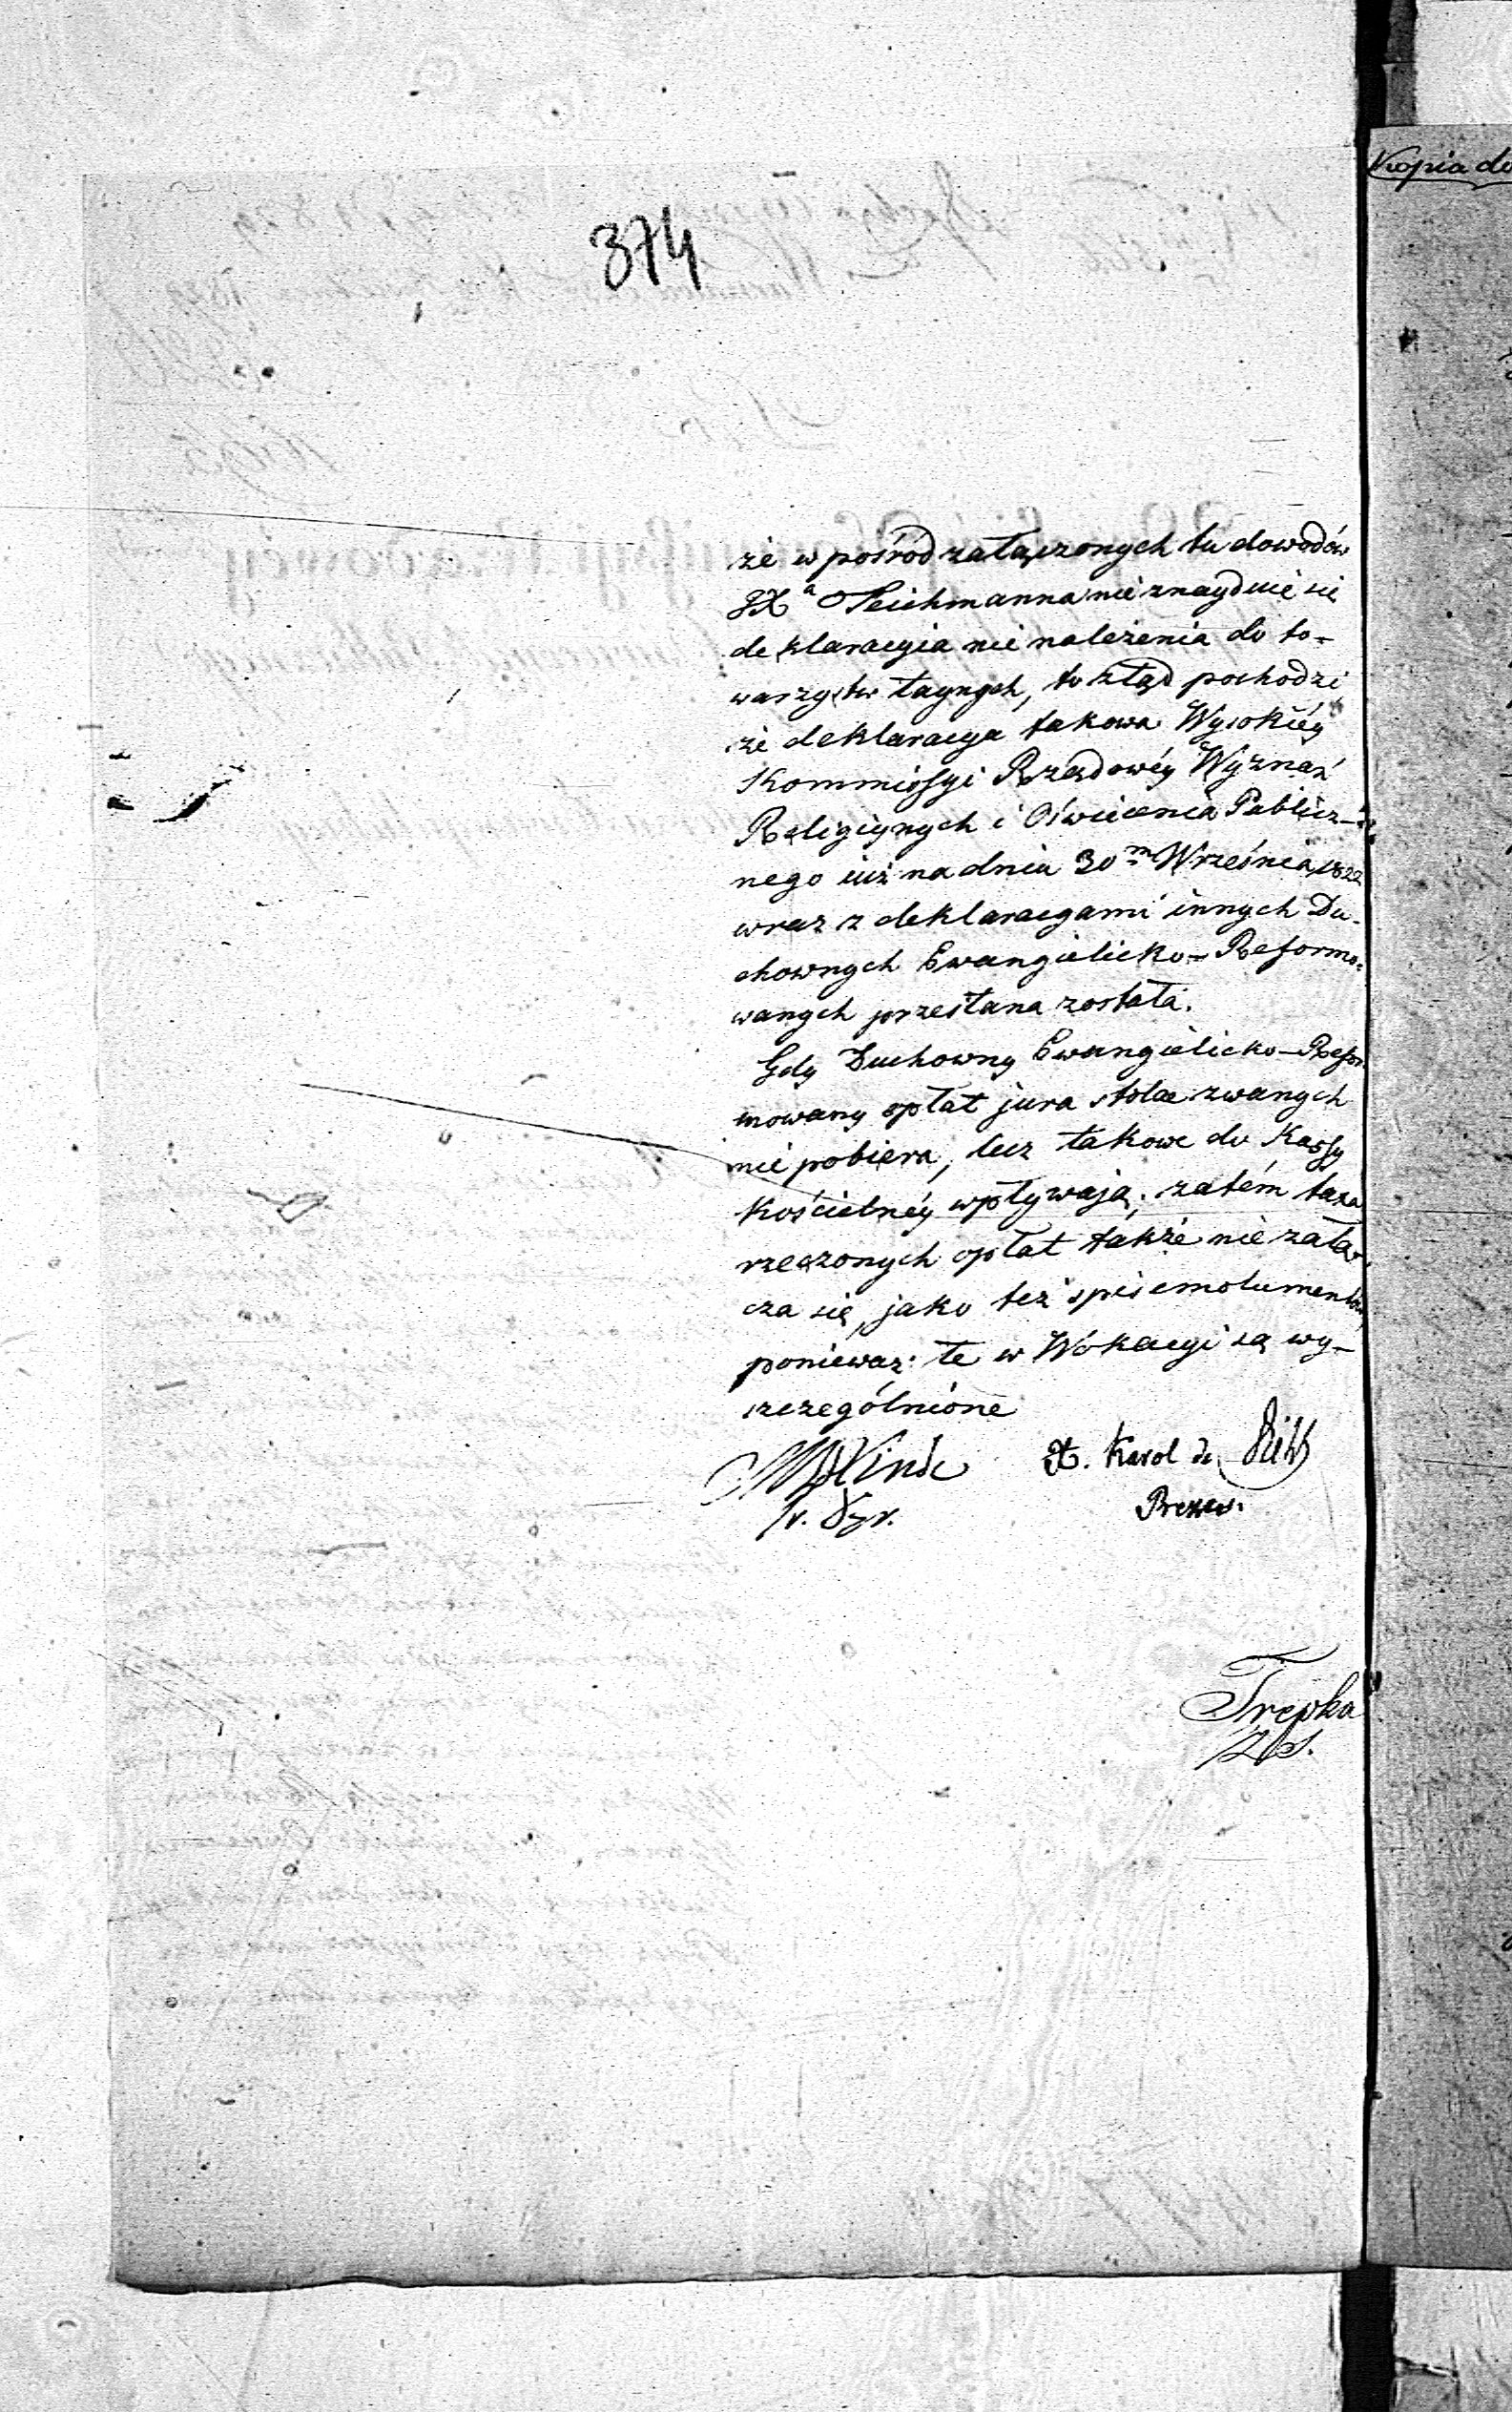 374
Kopia do
że w pośród załączonych tu dowodów
JX<sup>a</sup> Teichmanna nie znayduie się
deklaracyia nie należenia do to=
warzystw taynych, to ztąd pochodzi,
że deklaracya takowa Wysokiéy
Kommissyi Rządowéy Wyznań
Religiynych i Oświecenia Publicz-
nego iuż na dniu 30<sup>m</sup> Września 1822
wraz z deklaracyami innych Du-
chownych Ewangielicko=Reformo=
wanych przesłana została.
Gdy Duchowny Ewangielicko-Refor-
mowany opłat jura stolae zwanych
nie pobiera, lecz takowe do Kassy
Kościelnéy wpływaią; zatém taxa
rzeczonych opłat także nie załą-
cza się, jako też spis emolumentów,
ponieważ te w Wokacyi są wy-
szczególnione
X. Karol
Prezes.
Trepka